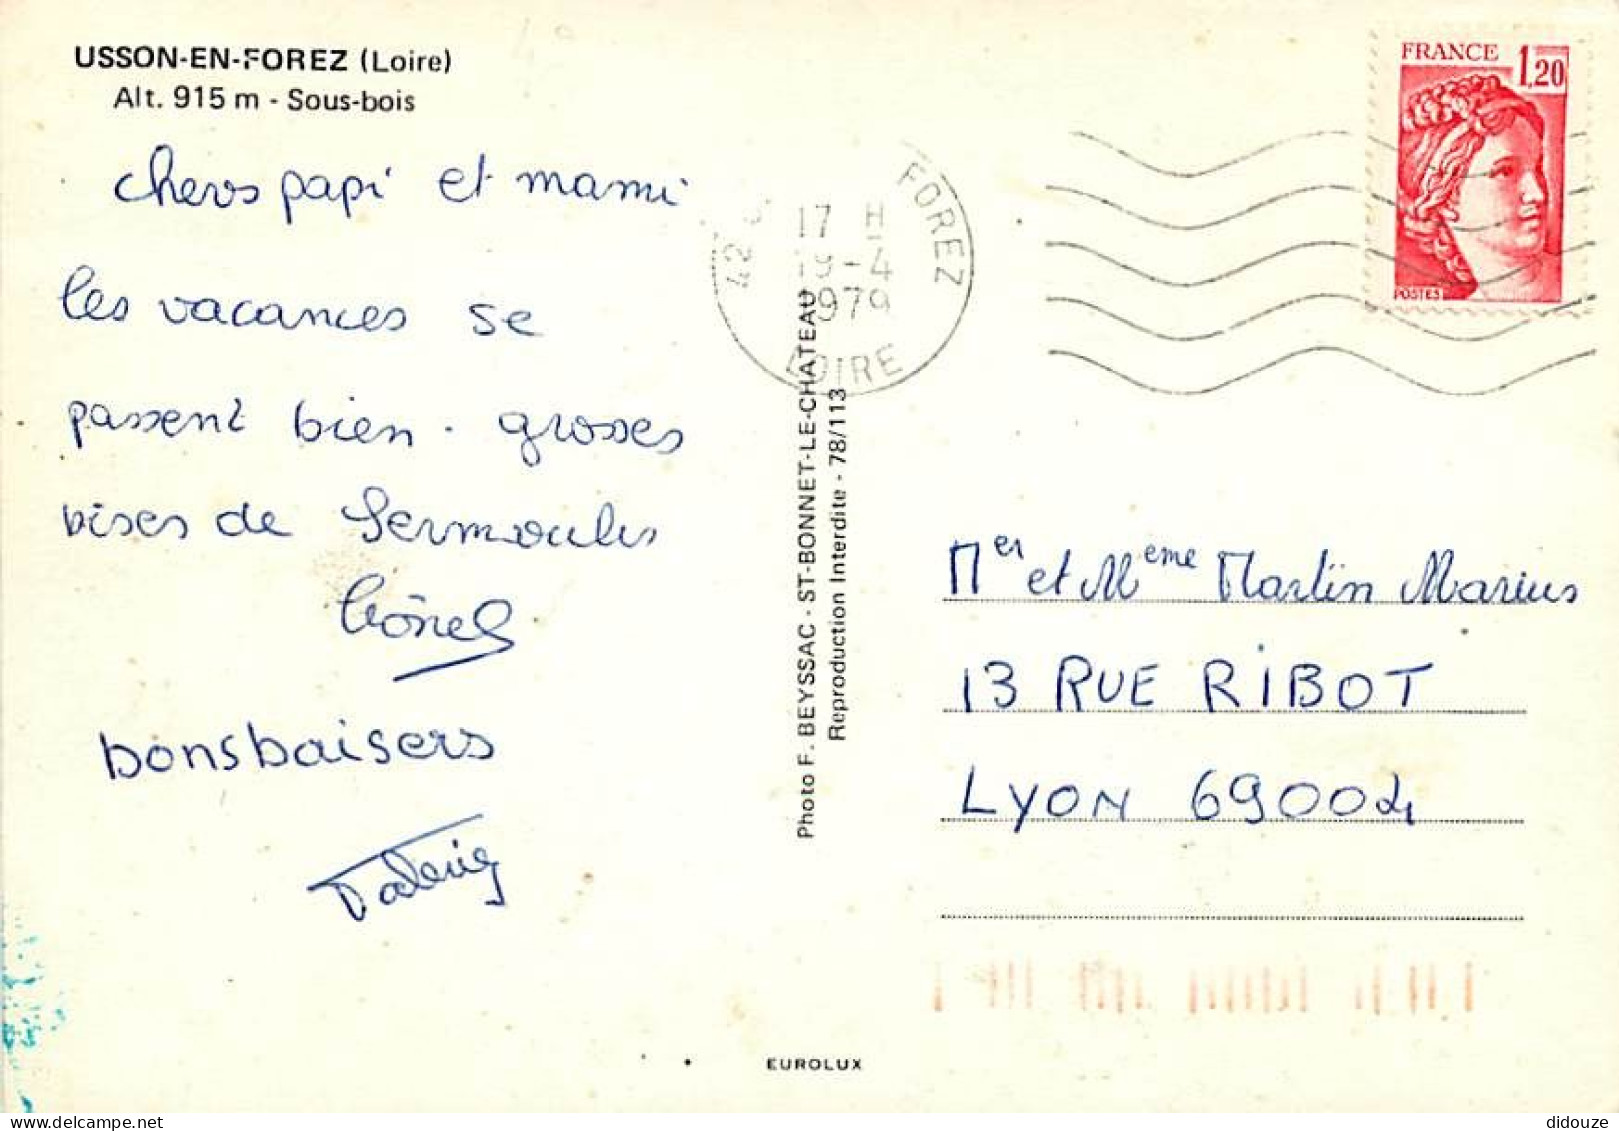 USSON-EN-FOREZ (Loire)
Alt. 915 m - Sous-bois
chers papi et mami
les vacances se
passent bien. grosses
bises de Sermoulis
Lionel
bons baisers
Valérie
17 H
19-4
1979
42
FOREZ
LOIRE
FRANCE
1,20
POSTES
Photo F. BEYSSAC - ST-BONNET-LE-CHATEAU
Reproduction Interdite - 78/113
Mer et Meme Martin Marius
13 RUE RIBOT
LYON 69004
EUROLUX
didouze